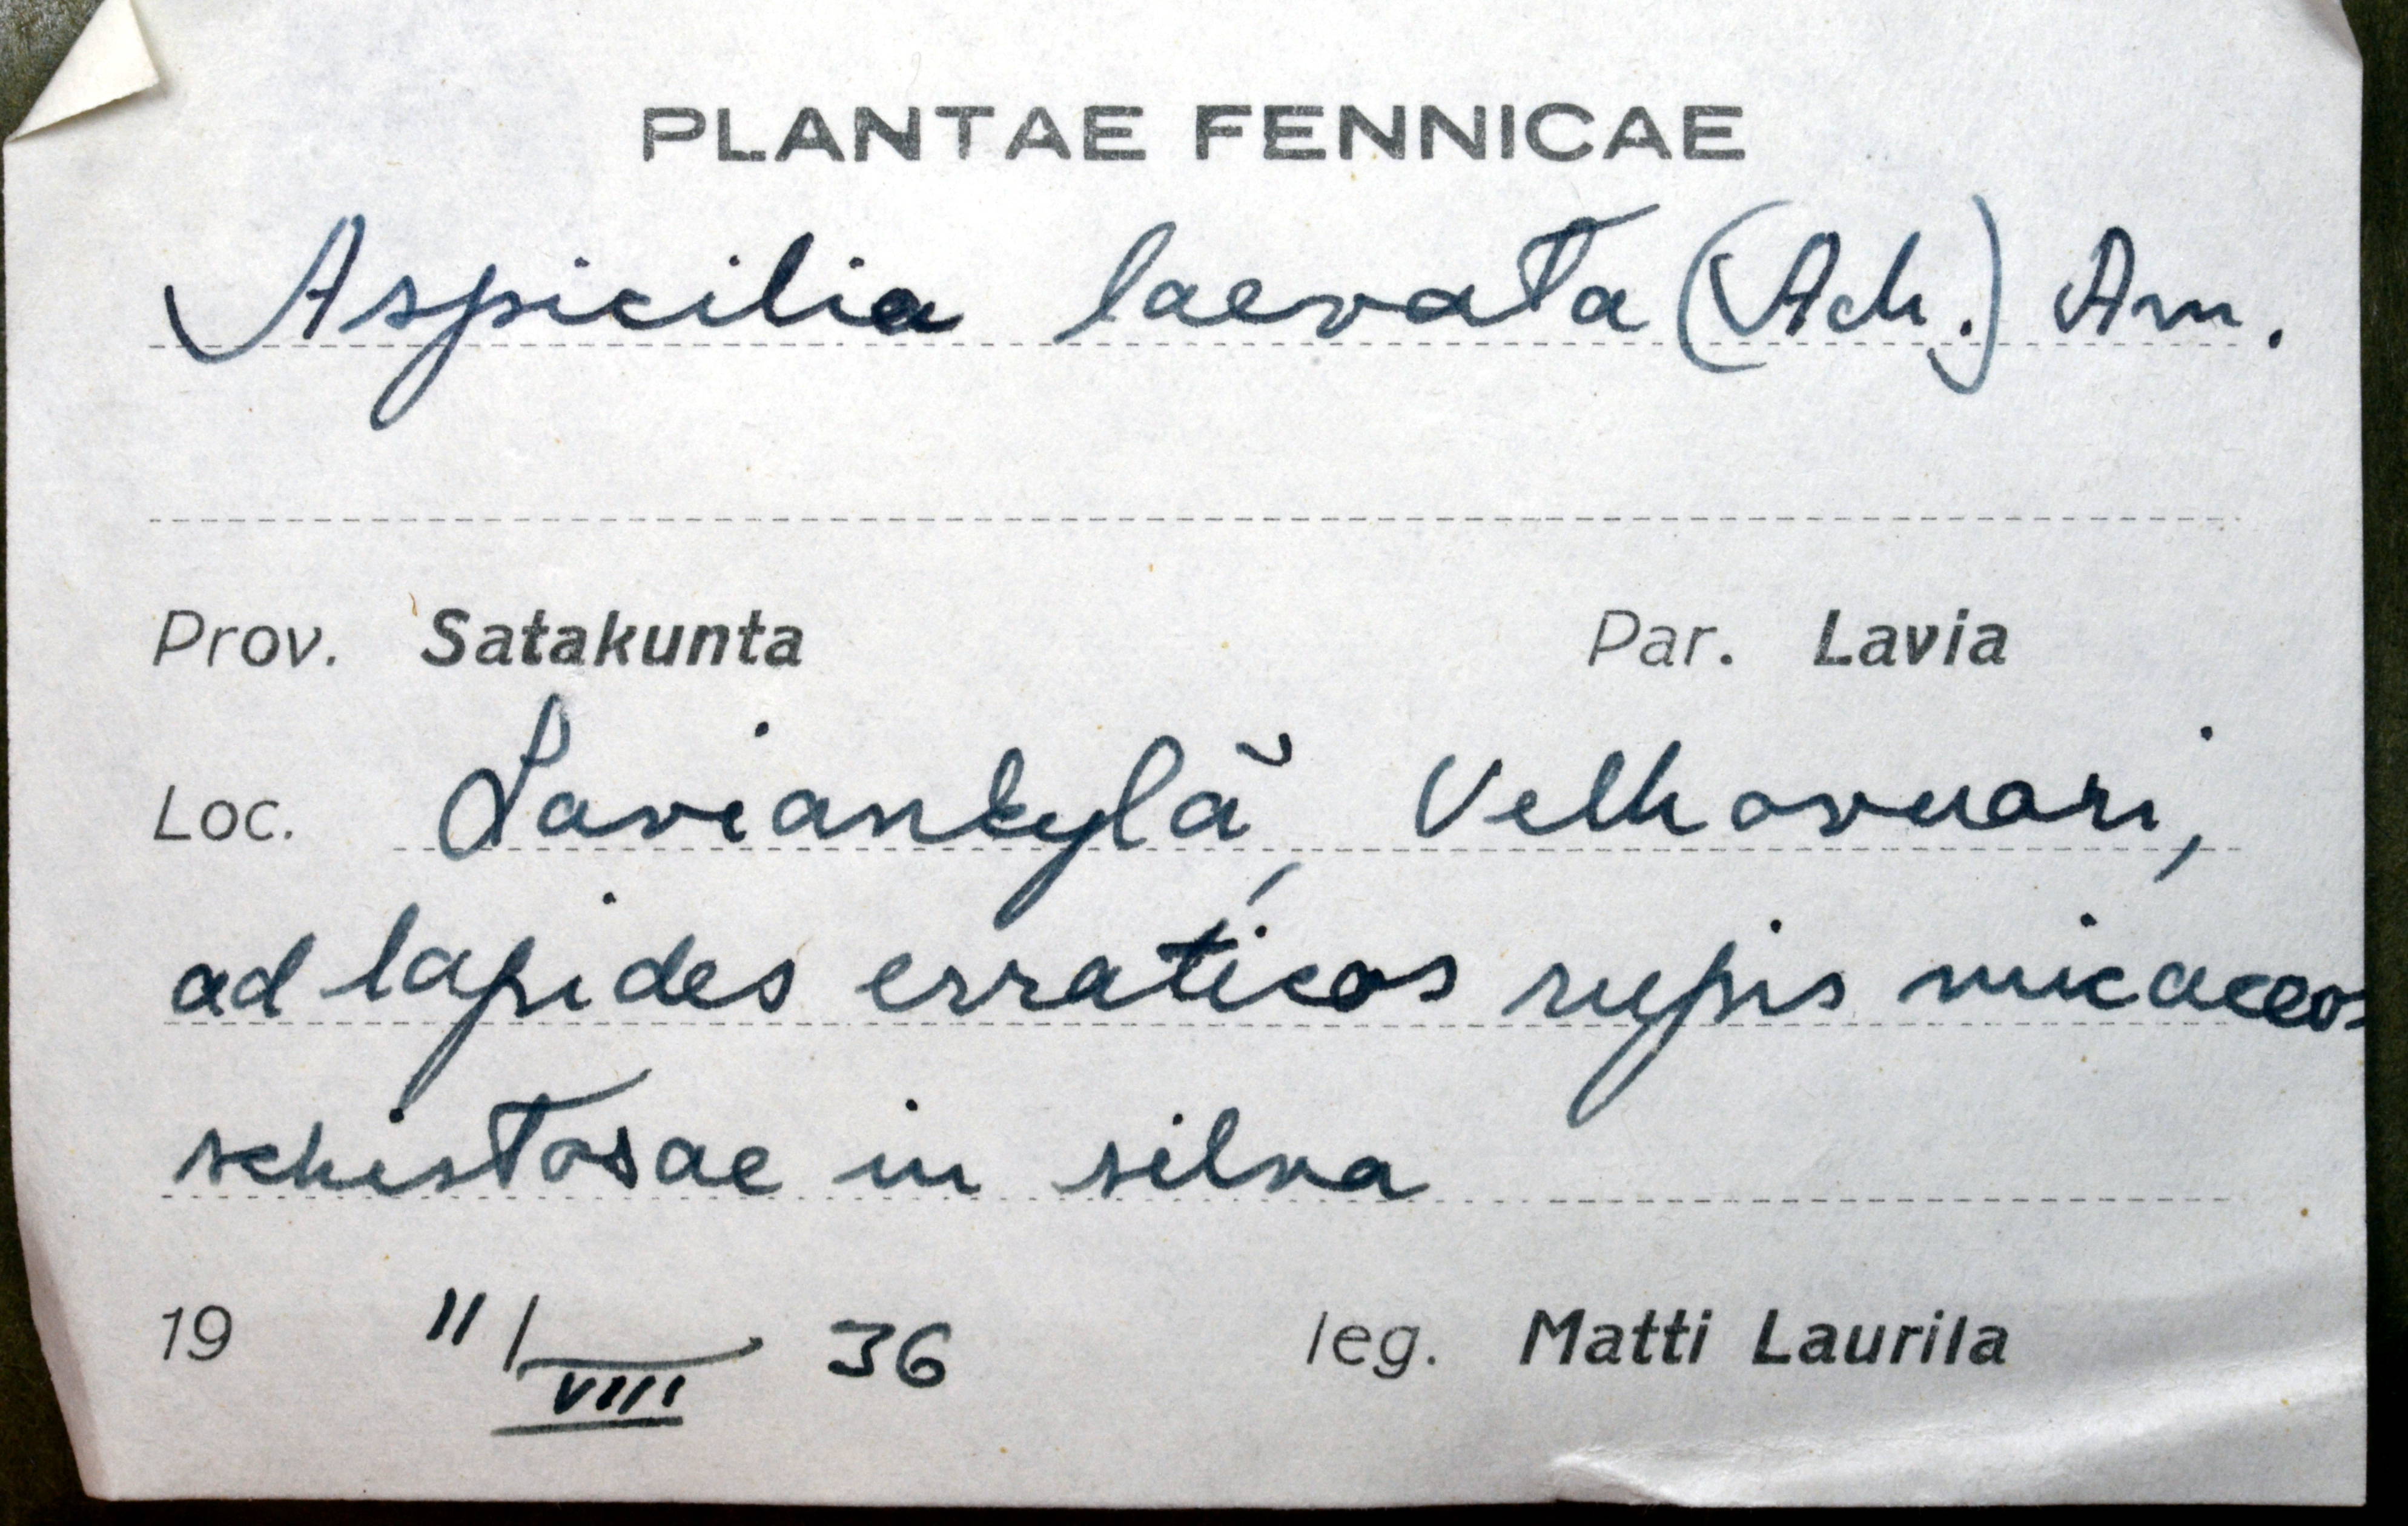 PLANTAE FENNICAE
Aspicilia laevata (Ach.) Arn.
Prov. Satakunta Par. Lavia
Loc. Laviankylä, Velhovuori,
ad lapides erraticos rupis micaceo-
schistosae in silva
19 11/VIII 36 leg. Matti Laurila